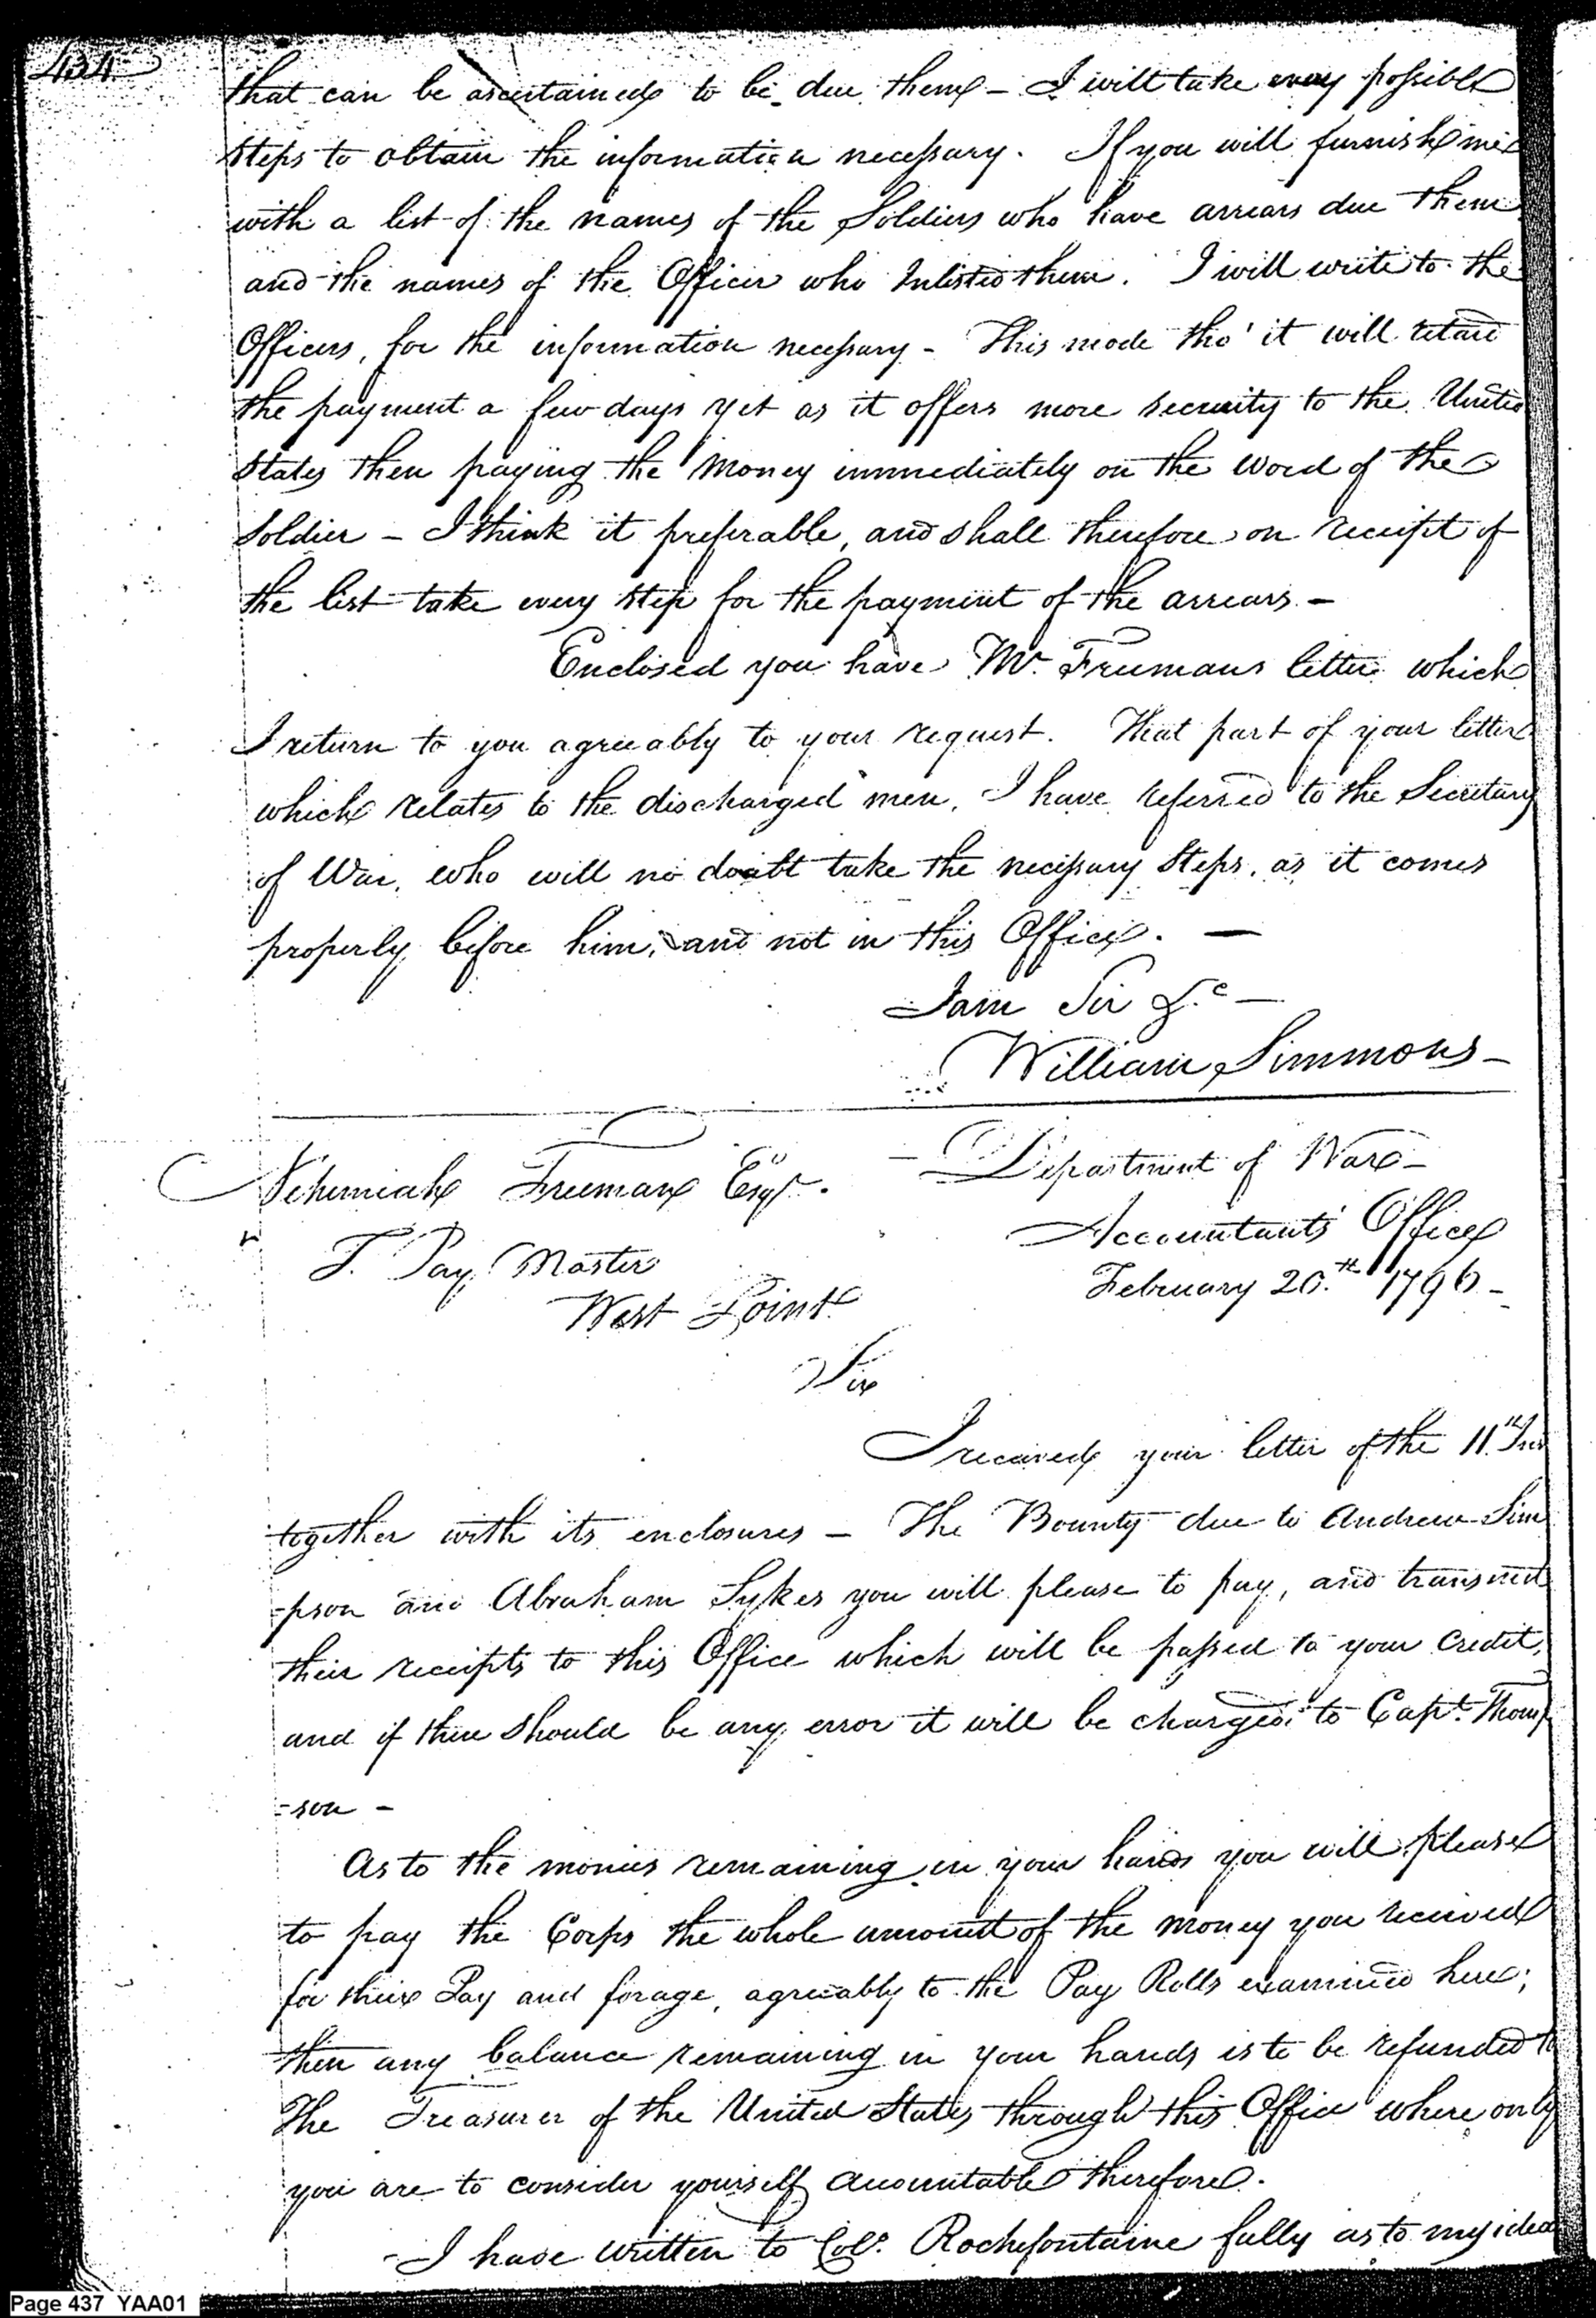 434
that can be ascertained to be due them – I will take every possible
steps to obtain the information necessary. If you will furnish me
with a list of the names of the Soldiers who have arrears due them
and the names of the Officer who Inlisted them. I will write to the
Officers, for the information necessary – This mode tho' it will retard
the payment a few days yet as it offers more security to the United
States then paying the Money immediately on the word of the
Soldier – I think it preferable, and shall therefore on receipt of
the list take every step for the payment of the arrears –
Enclosed you have Mr. Freemans letter which
I return to you agreeably to your request. That part of your letter
which relates to the discharged men, I have referred to the Secretary
of War, who will no doubt take the necessary Steps, as it comes
properly before him, and not in this Office. —
I am Sir &c —
William Simmons –
Nehemiah Freeman Esqr.
T. Pay Master
West Point
Department of War –
Accountants Office
February 20.th 1796 –
Sir
I received your letter of the 11th Ins
together with its enclosures – The Bounty due to Andrew Sim
-pson and Abraham Sykes you will please to pay, and transmit
their receipts to this Office which will be passed to your credit,
and if there should be any error it will be charged to Capt. Thomp
-son –
As to the monies remaining in your hands you will please
to pay the Corps the whole amount of the money you received
for their Pay and forage, agreeably to the Pay Rolls examined here;
then any balance remaining in your hands is to be refunded to
The Treasurer of the United States through this Office where only
you are to consider yourself accountable therefore.
– I have written to Colo. Rochefontaine fully as to my idea
Page 437 YAA01